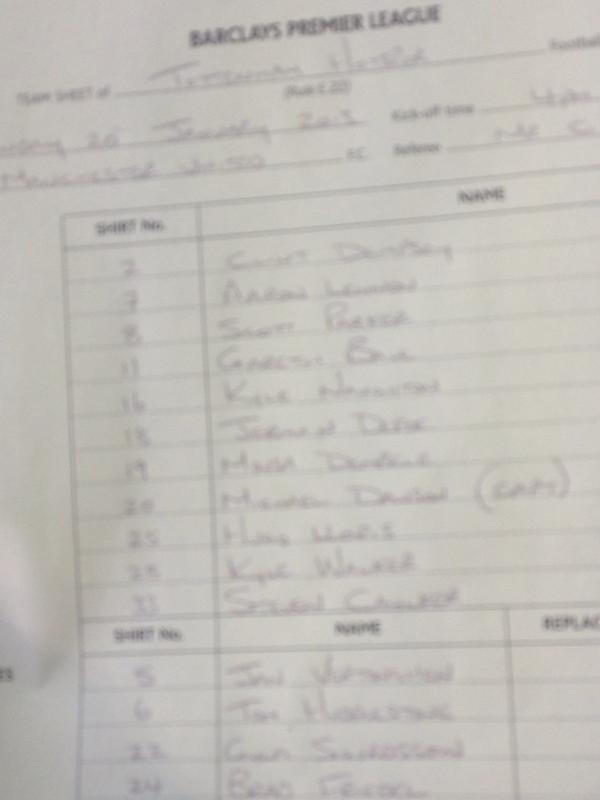 BARCLAYS PREMIER LEAGUE
TEAM SHEET of TOTTENHAM HOTSPUR Football
(Rule E.20)
20 JANUARY 2013 Kick-off time 4PM
MANCHESTER UNITED FC Referee MR C
SHIRT No. NAME
2 CLINT DEMPSEY
7 AARON LENNON
8 SCOTT PARKER
11 GARETH BALE
16 KYLE NAUGHTON
18 JERMAIN DEFOE
19 MOUSA DEMBELE
20 MICHAEL DAWSON (CAPT)
25 HUGO LLORIS
28 KYLE WALKER
33 STEVEN CAULKER
SHIRT No. NAME REPLAC
5 JAN VERTONGHEN
6 TOM HUDDLESTONE
22 GYLFI SIGURDSSON
24 BRAD FRIEDEL